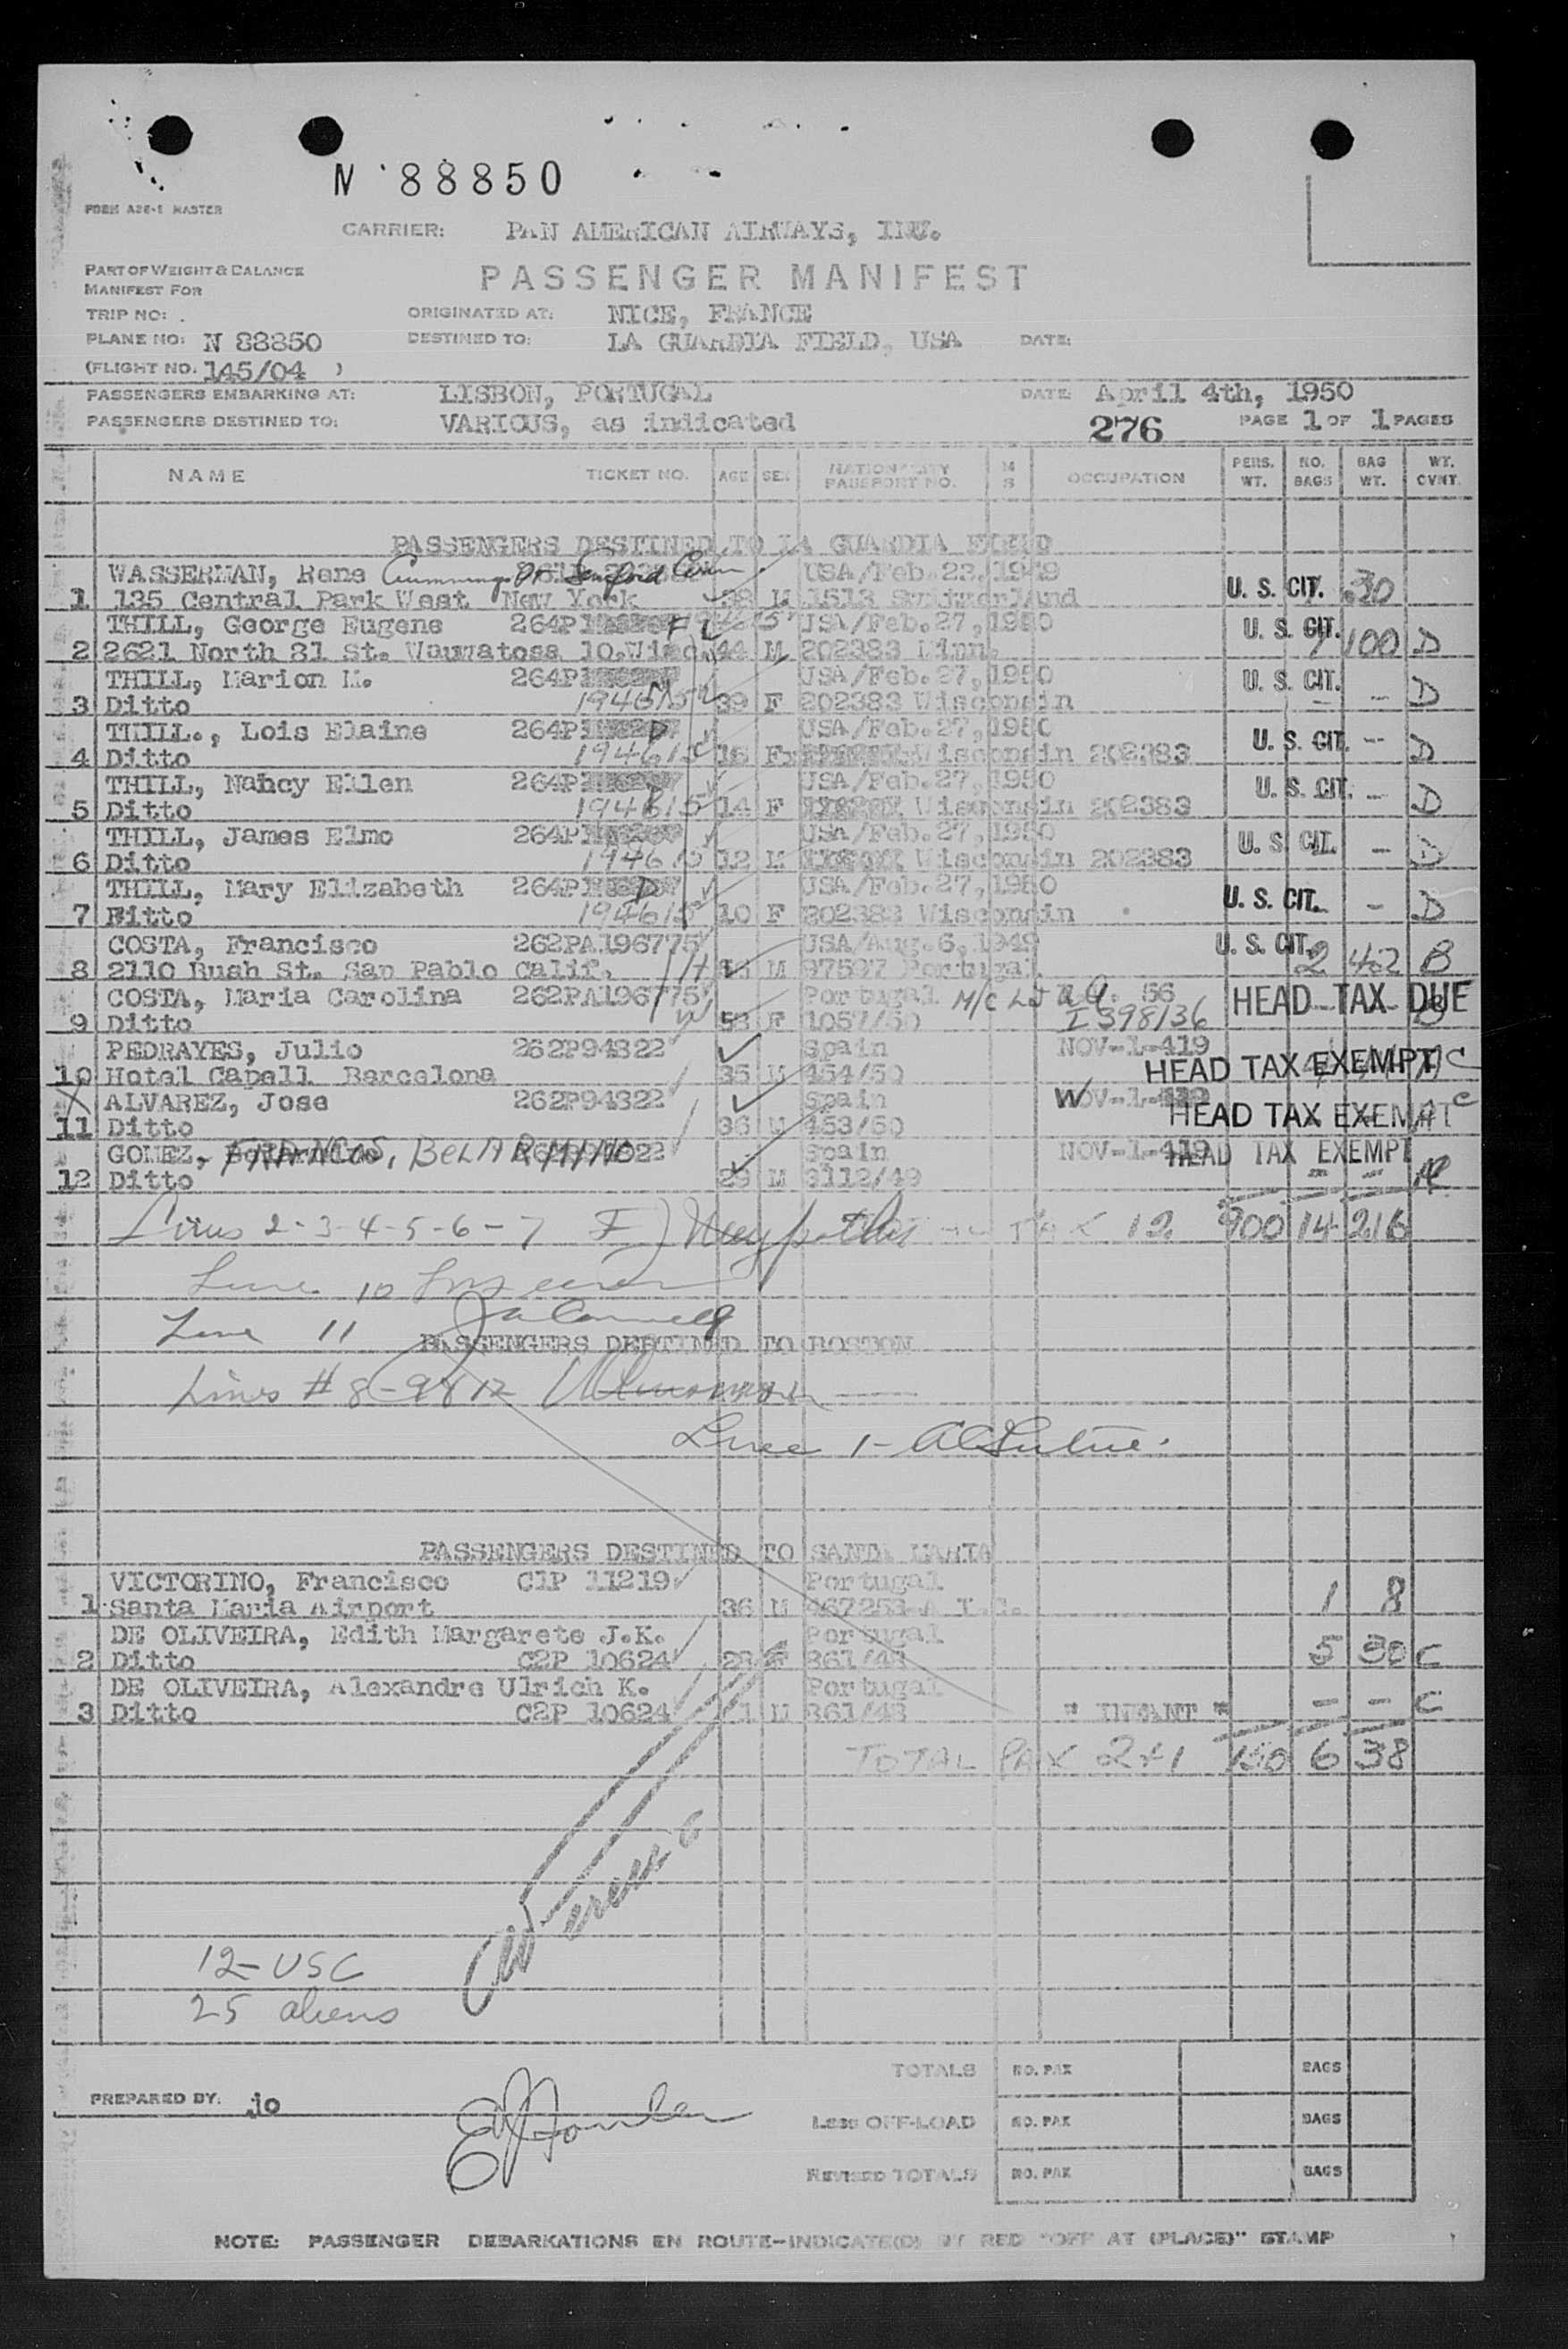 N 88850
FORM A26-1 MASTER
CARRIER: PAN AMERICAN AIRWAYS, INC.
PART OF WEIGHT & BALANCE
MANIFEST FOR
PASSENGER MANIFEST
TRIP NO: . ORIGINATED AT: NICE, FRANCE
PLANE NO: N 88850 DESTINED TO: LA GUARDIA FIELD, USA DATE:
(FLIGHT NO. 145/04 )
PASSENGERS EMBARKING AT: LISBON, PORTUGAL DATE: April 4th, 1950
PASSENGERS DESTINED TO: VARIOUS, as indicated 276 PAGE 1 OF 1 PAGES
NAME TICKET NO. AGE SEX NATIONALITY PASSPORT NO. M S OCCUPATION PERS. WT. NO. BAGS BAG WT. WT. CVNT.
PASSENGERS DESTINED TO LA GUARDIA FIELD
WASSERMAN, Rene Cummings Conn USA/Feb.23,1949
1 135 Central Park West New York 38 M 1513 Switzerland U. S. CIT. 30
THILL, George Eugene 264P USA/Feb.27,1950
2 2621 North 81 St. Wauwatosa 10.Wisc. 44 M 202383 Minn. U. S. CIT. 7 100 D
THILL, Marion M. 264P USA/Feb.27,1950
3 Ditto 194615 39 F 202383 Wisconsin U. S. CIT. - - D
THILL., Lois Elaine 264P USA/Feb.27,1950
4 Ditto 194615 16 F Wisconsin 202383 U. S. CIT. -- D
THILL, Nancy Ellen 264P USA/Feb.27,1950
5 Ditto 194615 14 F Wisconsin 202383 U. S. CIT. - D
THILL, James Elmo 264P USA/Feb.27,1950
6 Ditto 194615 12 M Wisconsin 202383 U. S. CIT. - D
THILL, Mary Elizabeth 264P USA/Feb.27,1950
7 Ditto 194615 10 F 202383 Wisconsin U. S. CIT. - D
COSTA, Francisco 262PA196775 USA/Aug.6,1949
8 2110 Rush St. San Pablo Calif. M 97597 Portugal U. S. CIT. 2 42 B
COSTA, Maria Carolina 262PA196775 Portugal 56
9 Ditto 53 F 1057/50 I 398136 HEAD TAX DUE
PEDRAYES, Julio 262P94322 Spain NOV-1-419
10 Hotel Capell Barcelona 35 M 454/50 HEAD TAX EXEMPT C
ALVAREZ, Jose 262P94322 Spain NOV-1-419
11 Ditto 36 M 453/50 HEAD TAX EXEMPT C
GOMEZ, FRANCOS, BELARMINO Spain NOV-1-419
12 Ditto 29 M 3112/49 HEAD TAX EXEMPT - -
Lines 2-3-4-5-6-7 PAX 12 900 14 216
Line 10
Line 11
PASSENGERS DESTINED TO BOSTON
Lines # 8-9&12
Line 1-
PASSENGERS DESTINED TO SANTA MARIA
VICTORINO, Francisco C1P 11219 Portugal
1 Santa Maria Airport 36 M 467253-A I.C. 1 8
DE OLIVEIRA, Edith Margarete J.K. Portugal
2 Ditto C2P 10624 28 F 361/48 5 30 C
DE OLIVEIRA, Alexandre Ulrich K. Portugal
3 Ditto C2P 10624 1 M 361/48 " INFANT " - - C
TOTAL PAX 2+1 150 6 38
12-USC
25 aliens
TOTALS NO. PAX BAGS
PREPARED BY: jo
LESS OFF-LOAD NO. PAX BAGS
REVISED TOTALS NO. PAX BAGS
NOTE: PASSENGER DEBARKATIONS EN ROUTE-INDICATE(D) BY RED "OFF AT (PLACE)" STAMP